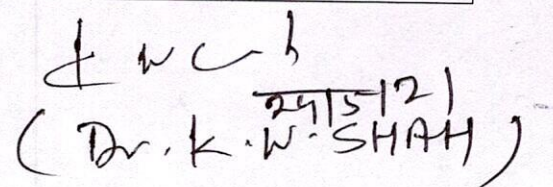 24/5/21
(Dr. K. W. SHAH)